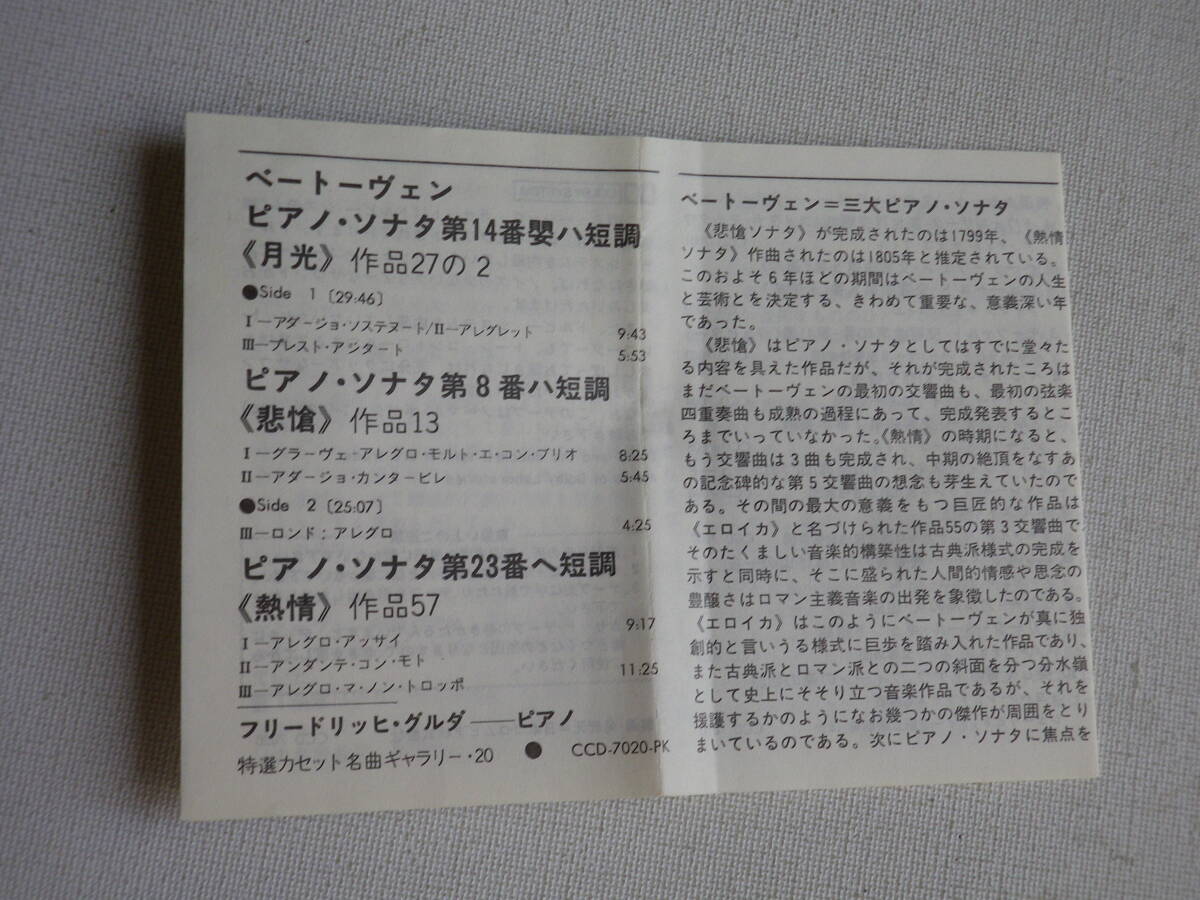 ベートーヴェン
ピアノ・ソナタ第14番嬰ハ短調
《月光》作品27の2
●Side 1〔29:46〕
I—アダージョ・ソステヌート/II—アレグレット 9:43
III—プレスト・アジタート 5:53
ピアノ・ソナタ第8番ハ短調
《悲愴》作品13
I—グラーヴェ-アレグロ・モルト・エ・コン・ブリオ 8:25
II—アダージョ・カンタービレ 5:45
●Side 2〔25:07〕
III—ロンド：アレグロ 4:25
ピアノ・ソナタ第23番ヘ短調
《熱情》作品57
I—アレグロ・アッサイ 9:17
II—アンダンテ・コン・モト
III—アレグロ・マ・ノン・トロッポ 11:25
フリードリッヒ・グルダ——ピアノ
特選カセット名曲ギャラリー・20 ● CCD-7020-PK
ベートーヴェン＝三大ピアノ・ソナタ
《悲愴ソナタ》が完成されたのは1799年、《熱情
ソナタ》作曲されたのは1805年と推定されている。
このおよそ6年ほどの期間はベートーヴェンの人生
と芸術とを決定する、きわめて重要な、意義深い年
であった。
《悲愴》はピアノ・ソナタとしてはすでに堂々た
る内容を具えた作品だが、それが完成されたころは
まだベートーヴェンの最初の交響曲も、最初の弦楽
四重奏曲も成熟の過程にあって、完成発表するとこ
ろまでいっていなかった。《熱情》の時期になると、
もう交響曲は3曲も完成され、中期の絶頂をなすあ
の記念碑的な第5交響曲の想念も芽生えていたので
ある。その間の最大の意義をもつ巨匠的な作品は
《エロイカ》と名づけられた作品55の第3交響曲で
そのたくましい音楽的構築性は古典派様式の完成を
示すと同時に、そこに盛られた人間的情感や思念の
豊醸さはロマン主義音楽の出発を象徴したのである。
《エロイカ》はこのようにベートーヴェンが真に独
創的と言いうる様式に巨歩を踏み入れた作品であり、
また古典派とロマン派との二つの斜面を分つ分水嶺
として史上にそそり立つ音楽作品であるが、それを
援護するかのようになお幾つかの傑作が周囲をとり
まいているのである。次にピアノ・ソナタに焦点を